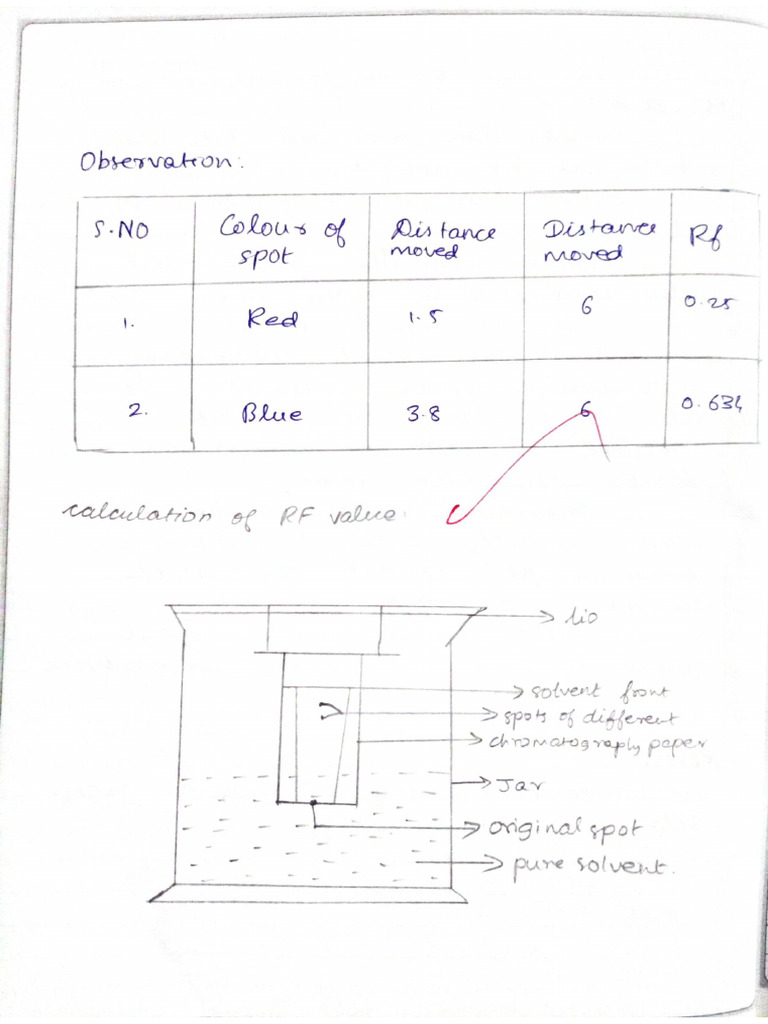 Observation:
S.NO Colour of spot Distance moved Distance moved Rf
1. Red 1.5 6 0.25
2. Blue 3.8 6 0.634
calculation of RF value.
lid
solvent front
spots of different
chromatography paper
Jar
original spot
pure solvent.